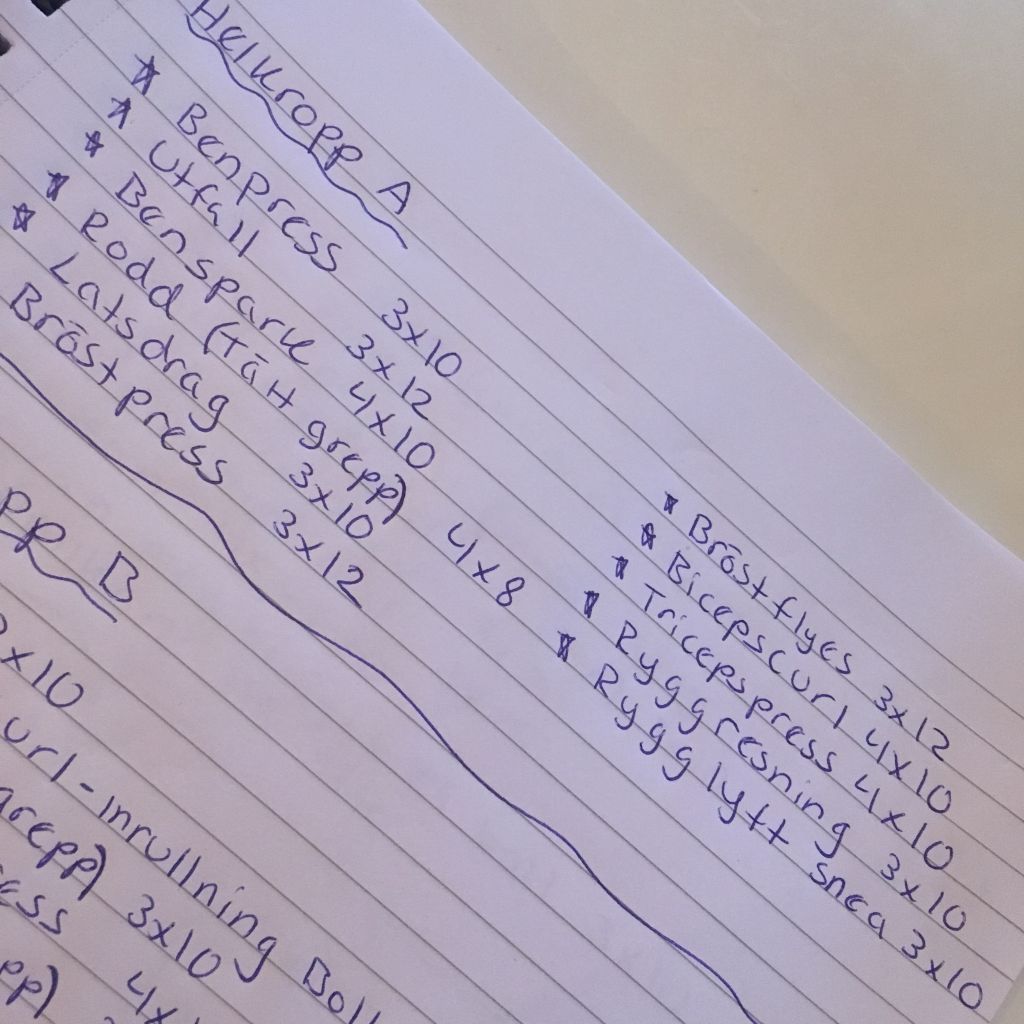 Helkropp A
* Benpress 3x10
* Utfall 3x12
* Benspark 4x10
* Rodd (tätt grepp) 4x8
* Latsdrag 3x10
Bröstpress 3x12
* Bröstflyes 3x12
* Bicepscurl 4x10
* Tricepspress 4x10
* Ryggresning 3x10
* Rygglyft snea 3x10
B
x10
url-inrullning Boll
grepp) 3x10
ess 4x
pp)